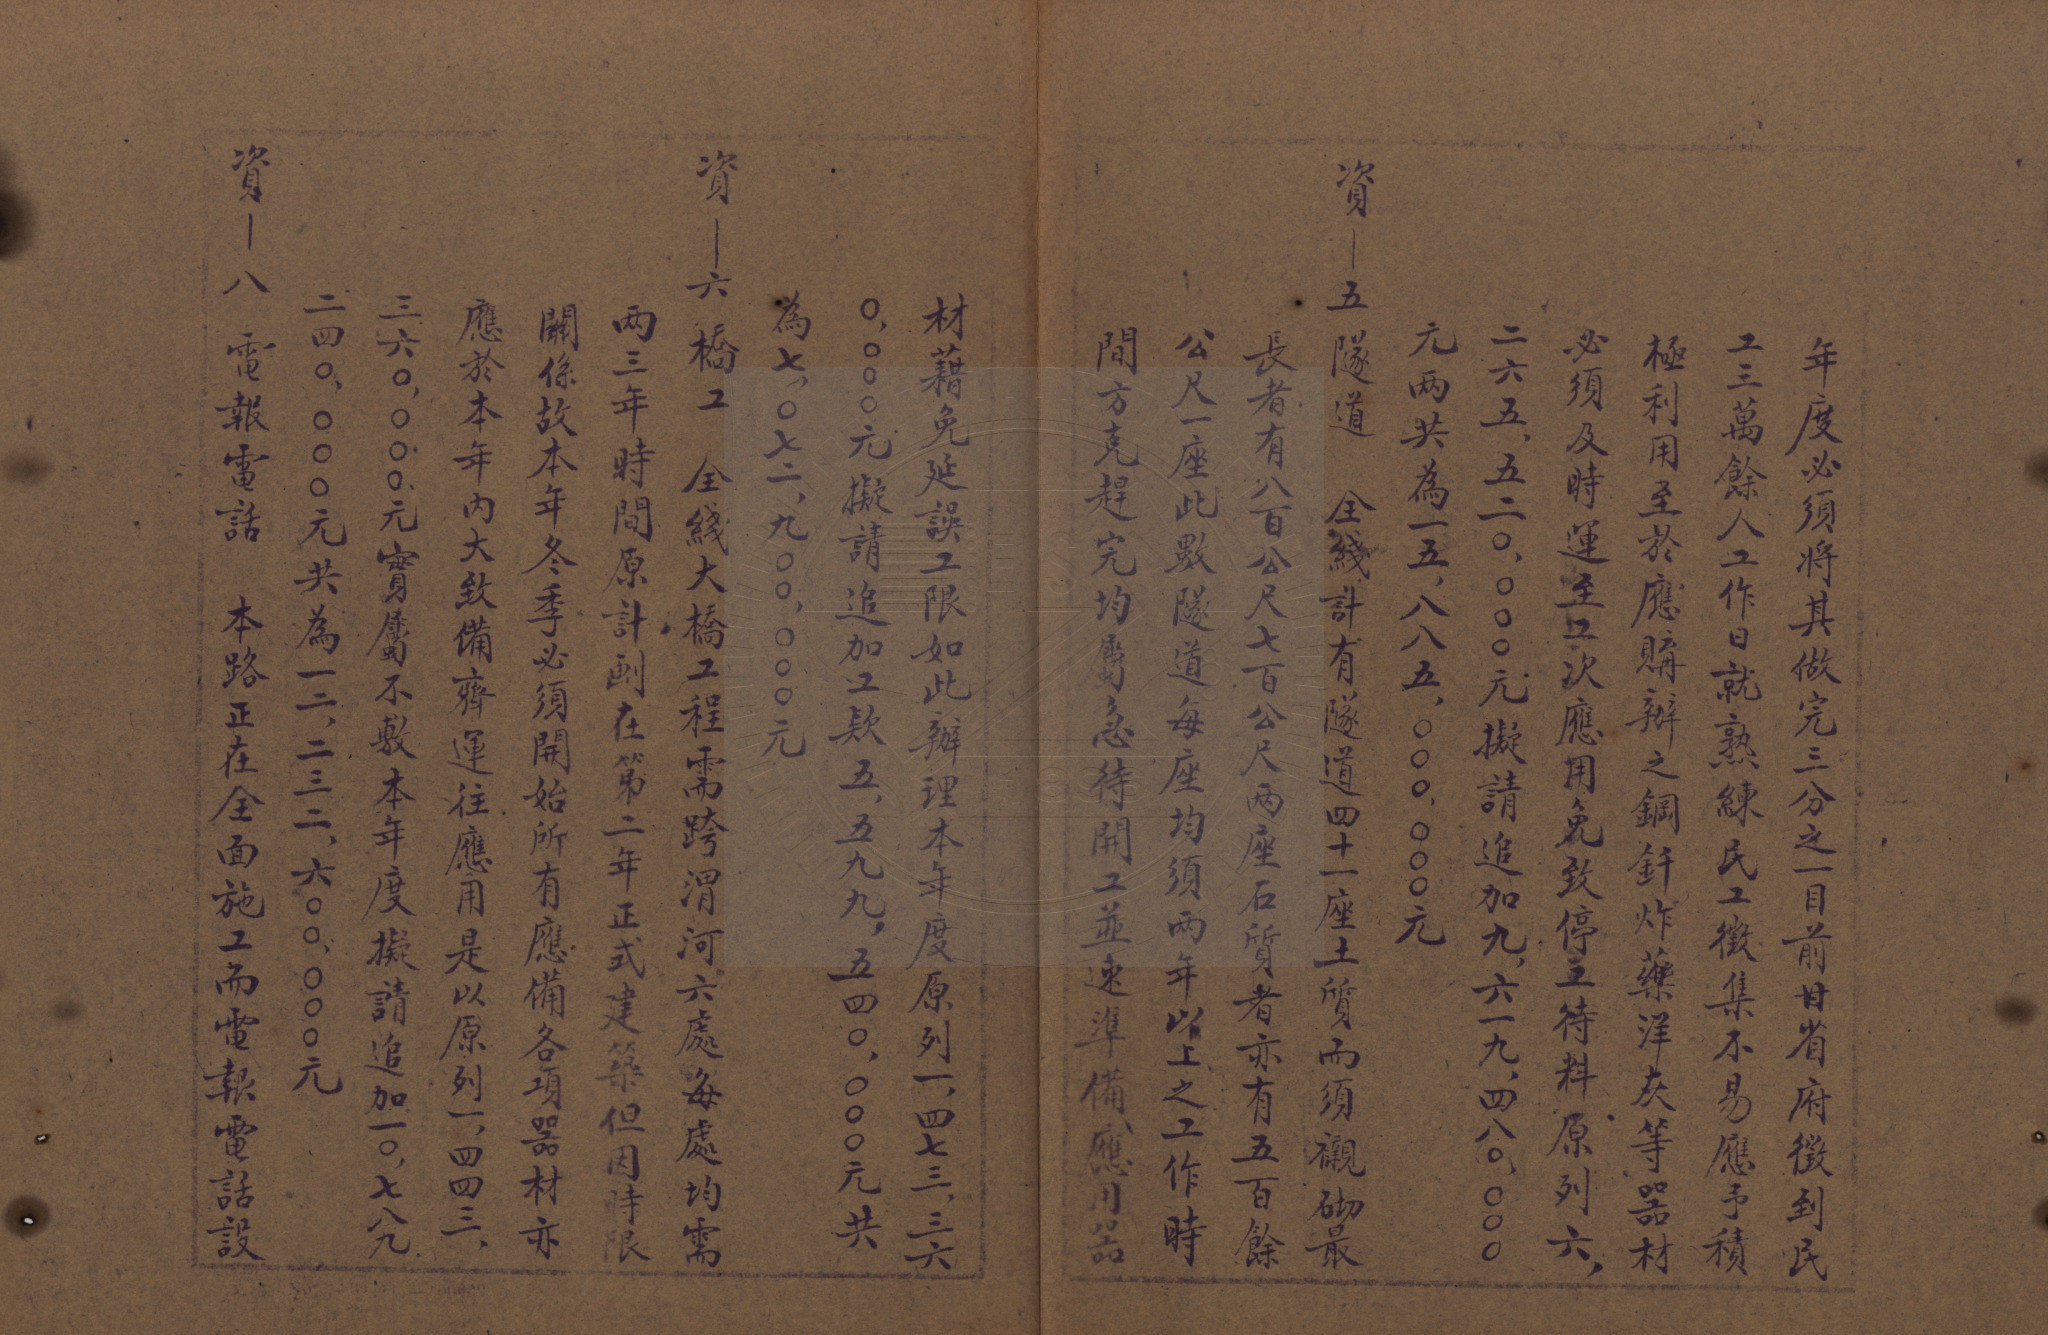 年度必須將其做完三分之一目前甘省府徵到民
工三萬餘人工作日就熟練民工徵集不易應予積
極利用至於應購辦之鋼釺炸藥洋灰等器材
必須及時運至工次應用免致停工待料原列六,
二六五,五二〇,〇〇〇元擬請追加九,六一九,四八〇,〇〇〇
元兩共為一五,八八五,〇〇〇,〇〇〇元
資—五 隧道 全綫計有隧道四十一座土質而須襯砌最
長者有八百公尺七百公尺兩座石質者亦有五百餘
公尺一座此數隧道每座均須兩年以上之工作時
間方克趕完均屬急待開工並速準備應用器
材藉免延誤工限如此辦理本年度原列一,四七三,三六
〇,〇〇〇元擬請追加工欵五,五九九,五四〇,〇〇〇元共
為七,〇七二,九〇〇,〇〇〇元
資—六 橋工 全綫大橋工程需跨渭河六處每處均需
兩三年時間原計劃在第二年正式建築但因時限
關係故本年冬季必須開始所有應備各項器材亦
應於本年內大致備齊運往應用是以原列一,四四三,
三六〇,〇〇〇元實屬不敷本年度擬請追加一〇,七八九
二四〇,〇〇〇元共為一二,二三二,六〇〇,〇〇〇元
資—八 電報電話 本路正在全面施工而電報電話設